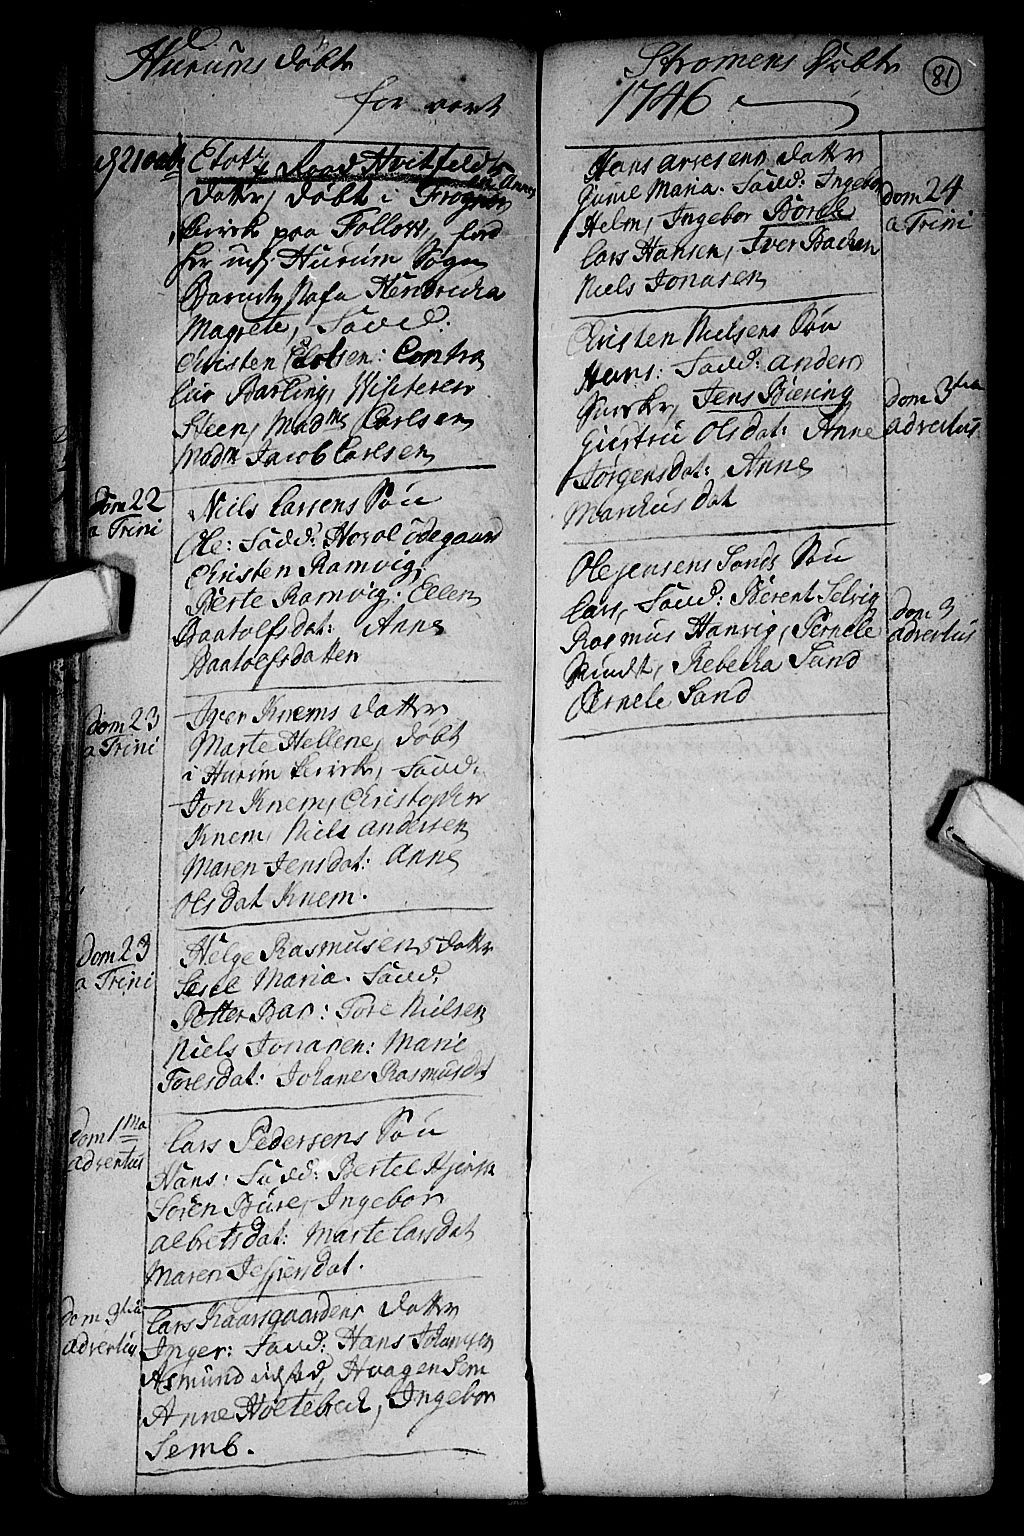 Hurums döbte
for vort
Stromens Döbte
1746
81
d 21 octb
Etats Raad Hvitfeldts
Datter, Döbt i Frogner Annex
kircke paa Follow, ford
Hurum Sogn
Hendricha
Magrete, Fadd:
Christen Elotsen: Contra
leür Barling, Visiteur
Steen, Madme Carlsen
Madm Jacob Carlsen
dom 22
a Trini
Niels Larsens Sön
Ole: Fadd: Horol ödegaard
Christen Ramvig,
Berte Ramvig: Ellen
Baatolfsdat: Anne
Baatolfsdatter
dom 23
a Trini
Iver Knems datter
Marte Hellene, döbt
i Hurum kircke, Fadd:
Jon Knem, Christopher
Knem, Niels Andersen
Maren Jensdat: Anne
Olsdat Knem.
dom 23
a Trini
Helge Rasmusens datter
Sesel Maria. Fadd:
Petter Bar: Tore Nielsen
Niels Jonasen: Marie
Toresdat: Johane Rasmusdt
dom 1 ma
adventus
Lars Pedersens Sön
Hans: Fadd: Bertel
Sören Büre, Ingebor
Albretsdat: Marte Larsdat
Maren Jespersdat.
dom 3tia
adventus
Lars Kaarsgaardens datter
Inger: Fadd: Hans Johansen
Asmund Haagen Sem
Anne Holtebreck, Ingebor
Semb.
Hans datter
Gunil Maria. Fadd: Ingebor
Helm, Ingebor
Lars Hansen, Iver Bachen
Niels Jonasen
dom 24
a Trini
Christen Nielsens Sön
Hans: Fadd: Anders
Jens Biering
Giertru Olsdat: Anne
Jörgensdat: Anne
Marchusdat
dom 3tia
adventus
Ole Jensens Sands Sön
Lars, Fadd: Berent Selvig
Rasmus Hanvig, Pernele
Rundt, Rebecka Sand
Pernele Sand
dom 3
adventus